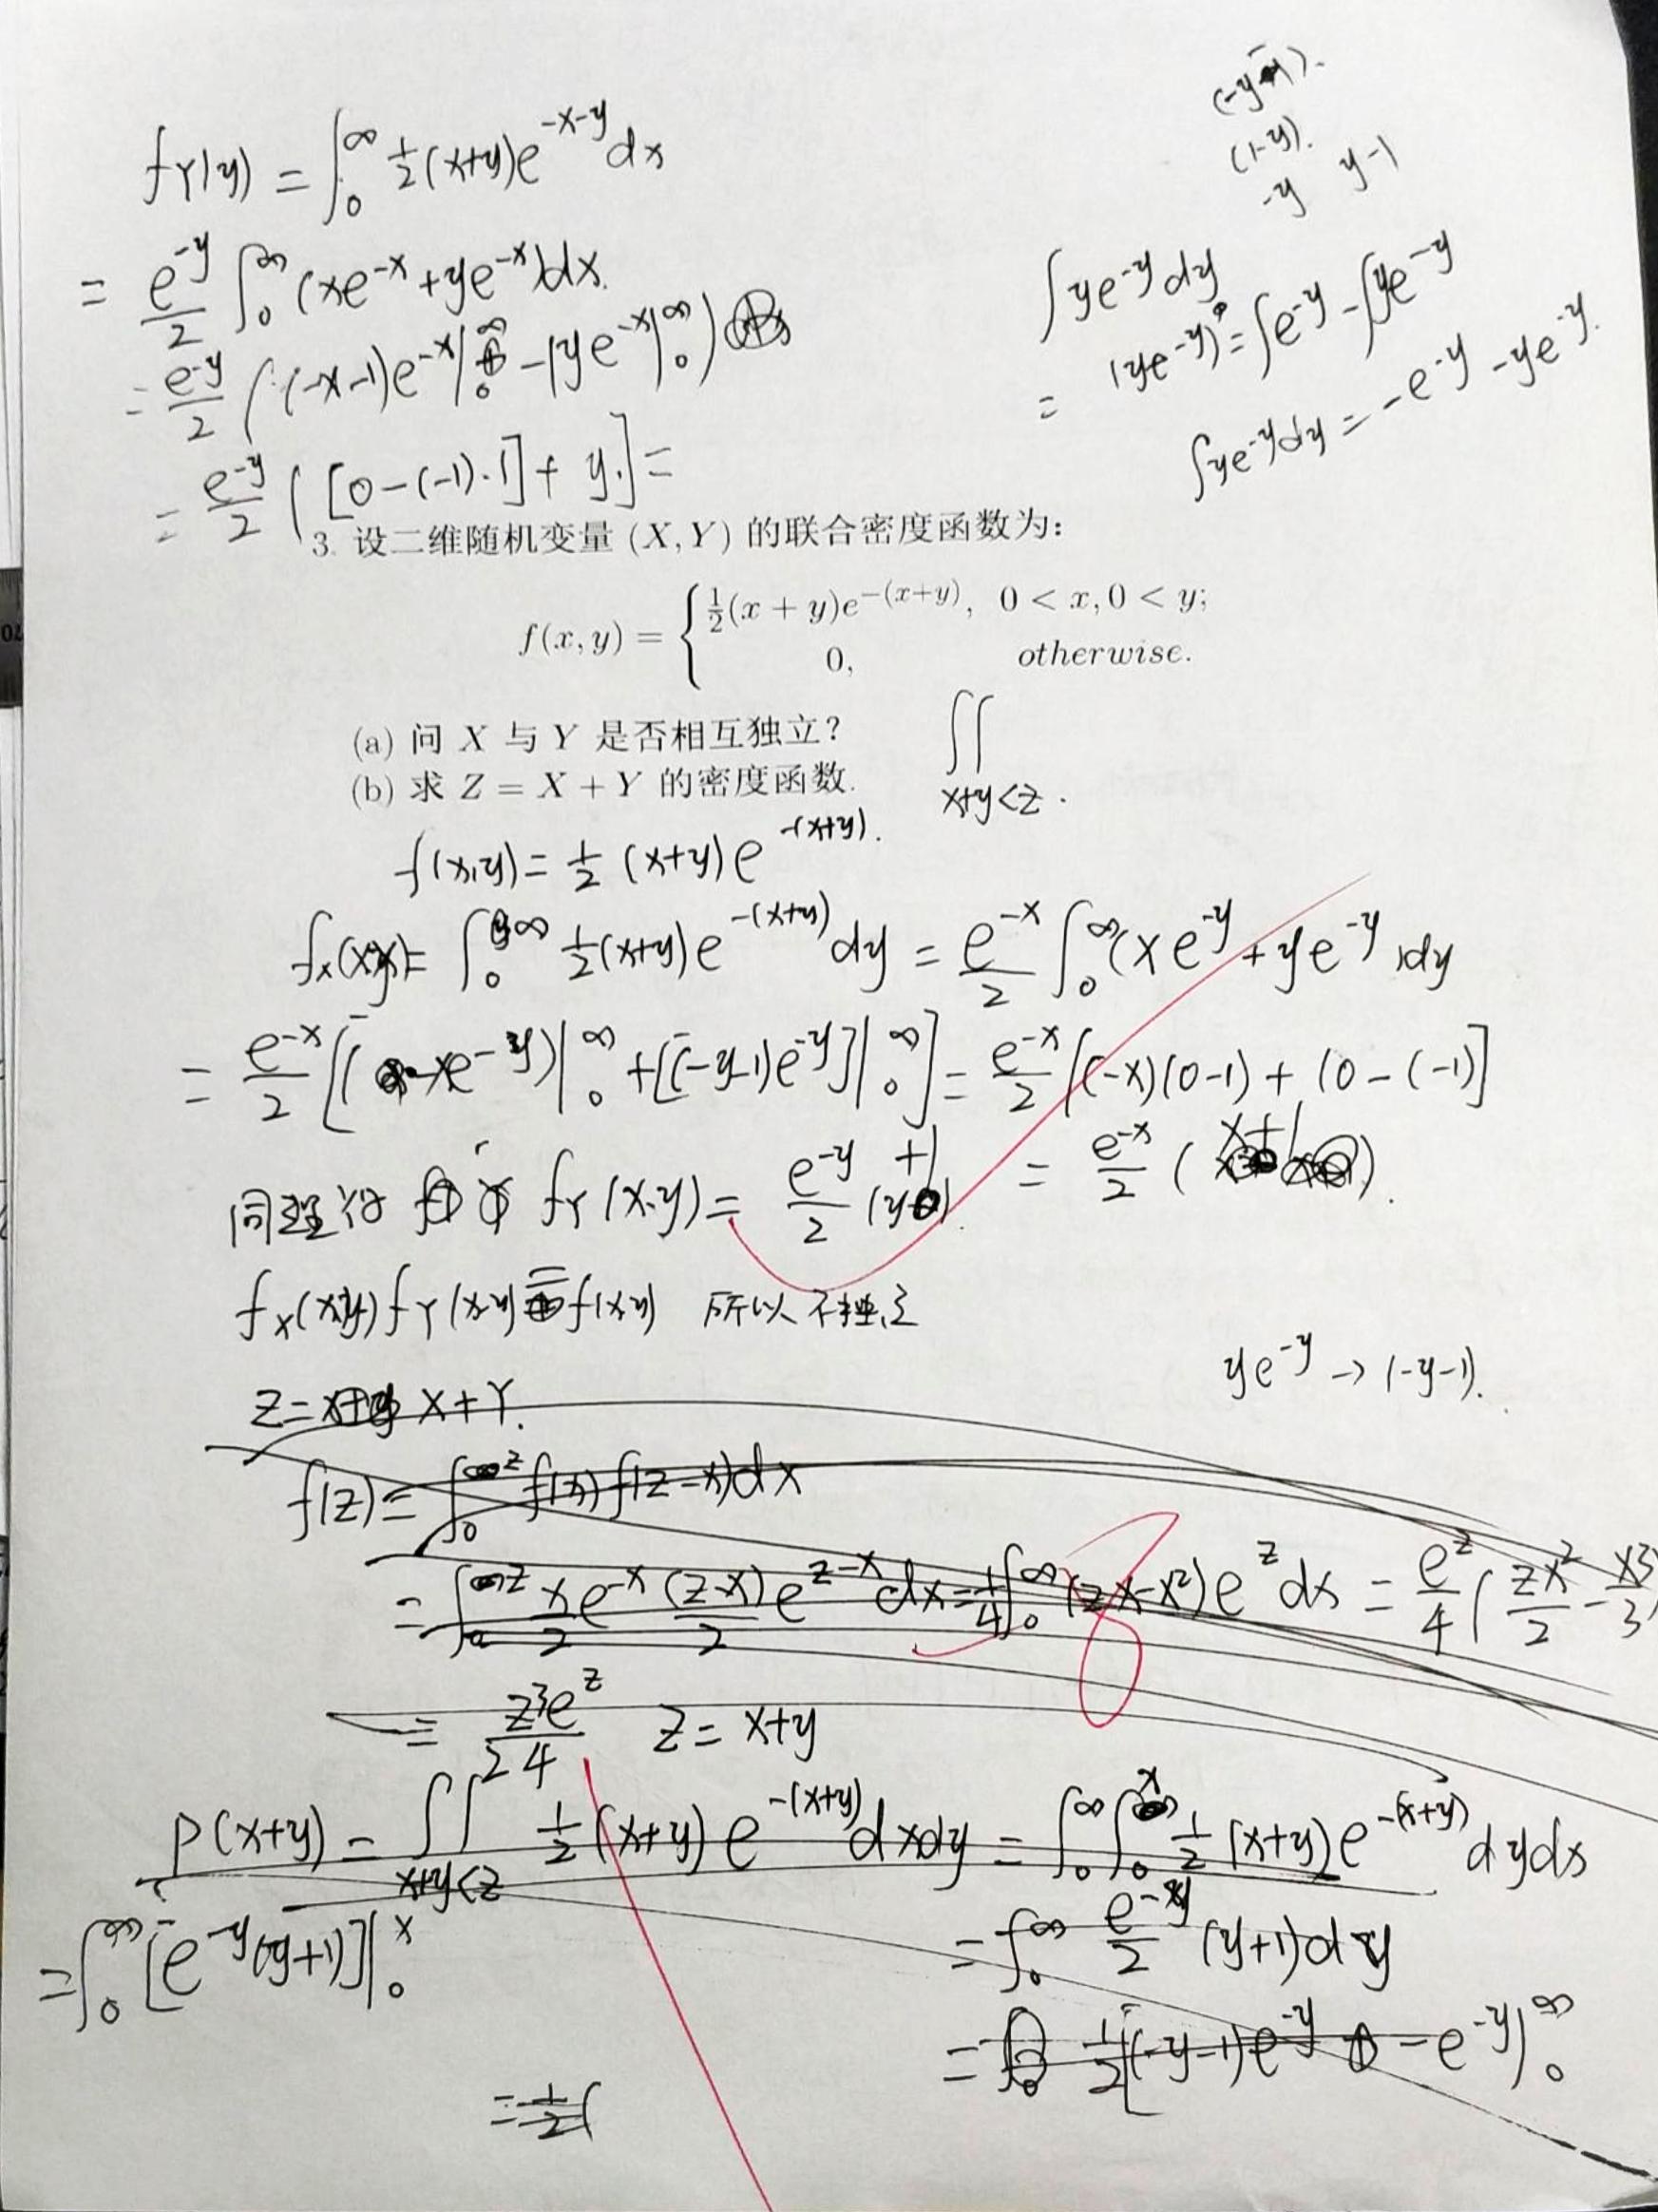 (-y-1).
(1-y).
-y y-1
fY(y) = ∫₀^∞ ½(x+y)e^{-x-y}dx
= e^{-y}/2 ∫₀^∞ (xe^{-x}+ye^{-x})dx.
= e^{-y}/2 ((-x-1)e^{-x}|₀^∞ -(ye^{-x}|₀^∞)
= e^{-y}/2 ([0-(-1)·1]+ y.] =
∫ye^{-y}dy
= (ye^{-y})' = ∫e^{-y} - ∫ye^{-y}
∫ye^{-y}dy = -e^{-y} -ye^{-y}.
3. 设二维随机变量 (X, Y) 的联合密度函数为:
f(x, y) = { ½(x + y)e^{-(x+y)}, 0 < x, 0 < y;
0, otherwise.
(a) 问 X 与 Y 是否相互独立?
(b) 求 Z = X + Y 的密度函数.
∬
x+y<z.
f(x,y) = ½ (x+y)e^{-(x+y)}.
fx(x) = ∫₀^∞ ½(x+y)e^{-(x+y)}dy = e^{-x}/2 ∫₀^∞(xe^{-y}+ye^{-y})dy
= e^{-x}/2 [(-xe^{-y})|₀^∞ +[(-y-1)e^{-y}]|₀^∞] = e^{-x}/2 [(-x)(0-1) + (0-(-1)]
= e^{-x}/2 (x+1).
同理得 fY(x,y) = e^{-y}/2 (y+1).
fX(x,y)fY(x,y) f(x,y) 所以不独立
ye^{-y} → (-y-1).
Z= X+Y.
f(z) = ∫₀^z f(x)f(z-x)dx
= ∫₀^z xe^{-x}/2 (z-x)/2 e^{z-x}dx = ¼∫₀^∞(zx-x²)e^z dx = e^z/4 (zx²/2 - x³/3)
= z³e^z/24 Z= x+y
P(x+y) = ∬_{x+y<z} ½(x+y)e^{-(x+y)}dxdy = ∫₀^∞∫₀^x ½(x+y)e^{-(x+y)}dydx
= ∫₀^∞ [e^{-y}(y+1)]|₀^x
= ∫₀^∞ e^{-y}/2 (y+1)dy
= ½[(-y-1)e^{-y} -e^{-y})₀^∞
= ½(